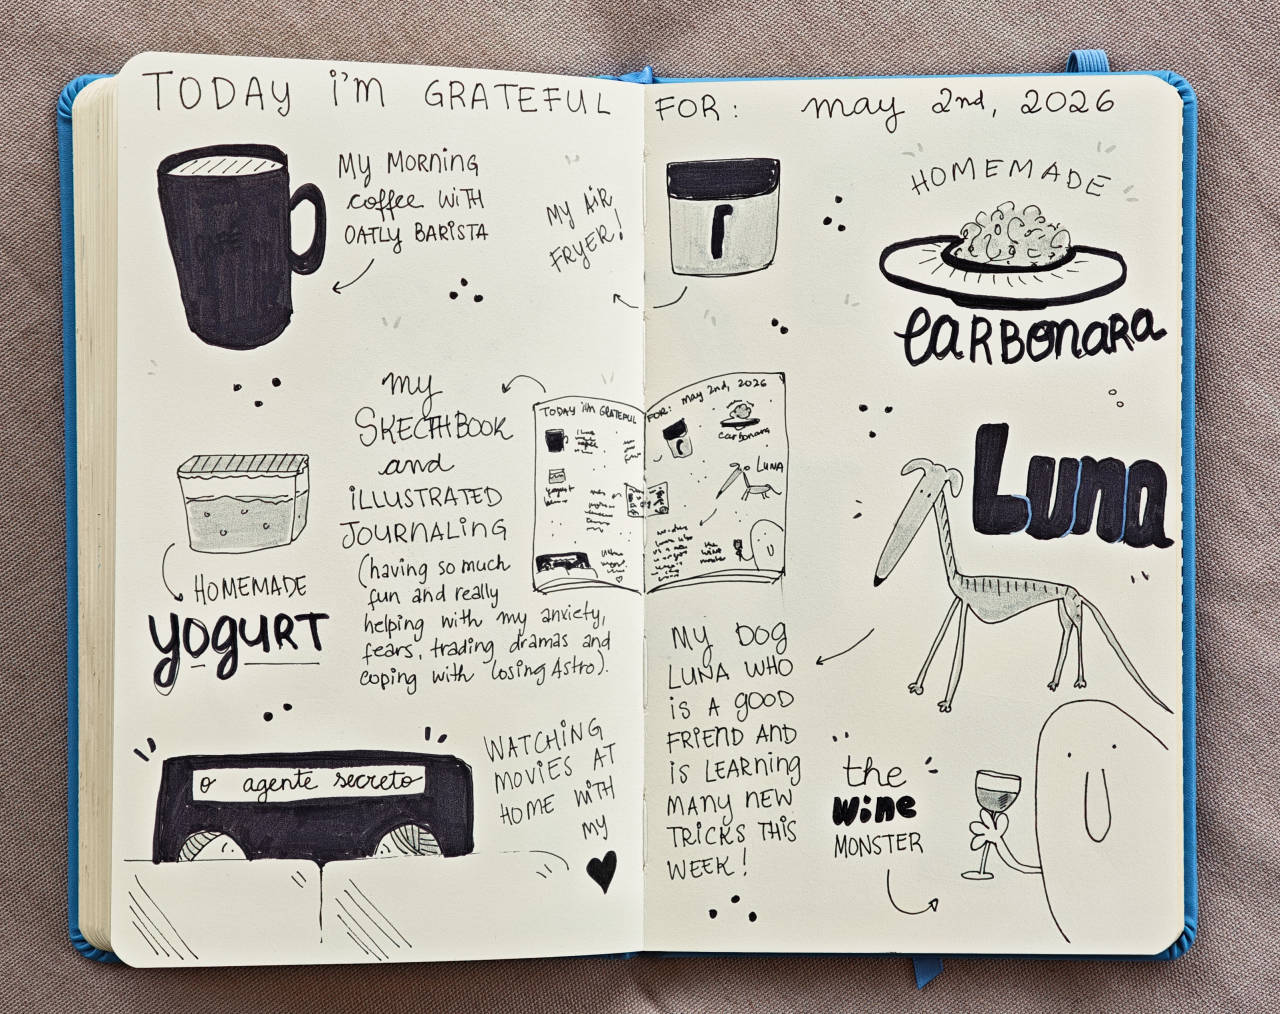 TODAY i'M GRATEFUL FOR: may 2nd, 2026
MY MORNING
coffee WITH
OATLY BARISTA
MY AIR
FRYER!
HOMEMADE
CARBONARA
my
SKECTHBOOK
and
iLLUSTRATED
JOURNALING
(having so much
fun and really
helping with my anxiety,
fears, trading dramas and
coping with losing Astro).
TODAY i'm GRATEFUL
FOR: may 2nd, 2026
carbonara
LUNA
HOMEMADE
YOGURT
Luna
MY DOG
LUNA WHO
iS A GOOD
FRiEND AND
iS LEARNiNG
MANY NEW
TRiCKS THiS
WEEK!
o agente secreto
WATCHING
MOViES AT
HOME WiTH
MY
the
WiNe
MONSTER